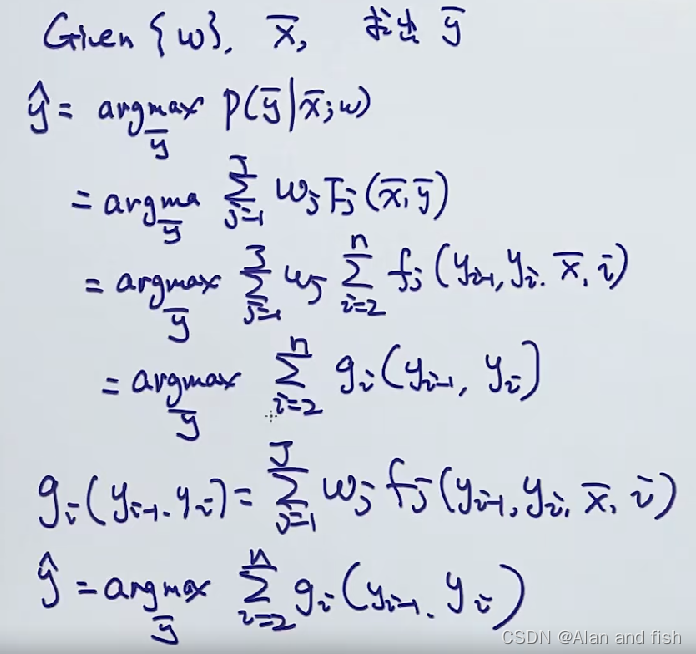 Given {w}, x̄, 求出 ȳ
ŷ = argmax_ȳ P(ȳ|x̄;w)
= argma_ȳ ∑_{j=1}^{J} w_j F_j(x̄,ȳ)
= argmax_ȳ ∑_{j=1}^{J} w_j ∑_{i=2}^{n} f_j(y_{i-1}, y_i, x̄, i)
= argmax_ȳ ∑_{i=2}^{n} g_i(y_{i-1}, y_i)
g_i(y_{i-1}, y_i) = ∑_{j=1}^{J} w_j f_j(y_{i-1}, y_i, x̄, i)
ŷ = argmax_ȳ ∑_{i=2}^{n} g_i(y_{i-1}, y_i)
CSDN @Alan and fish